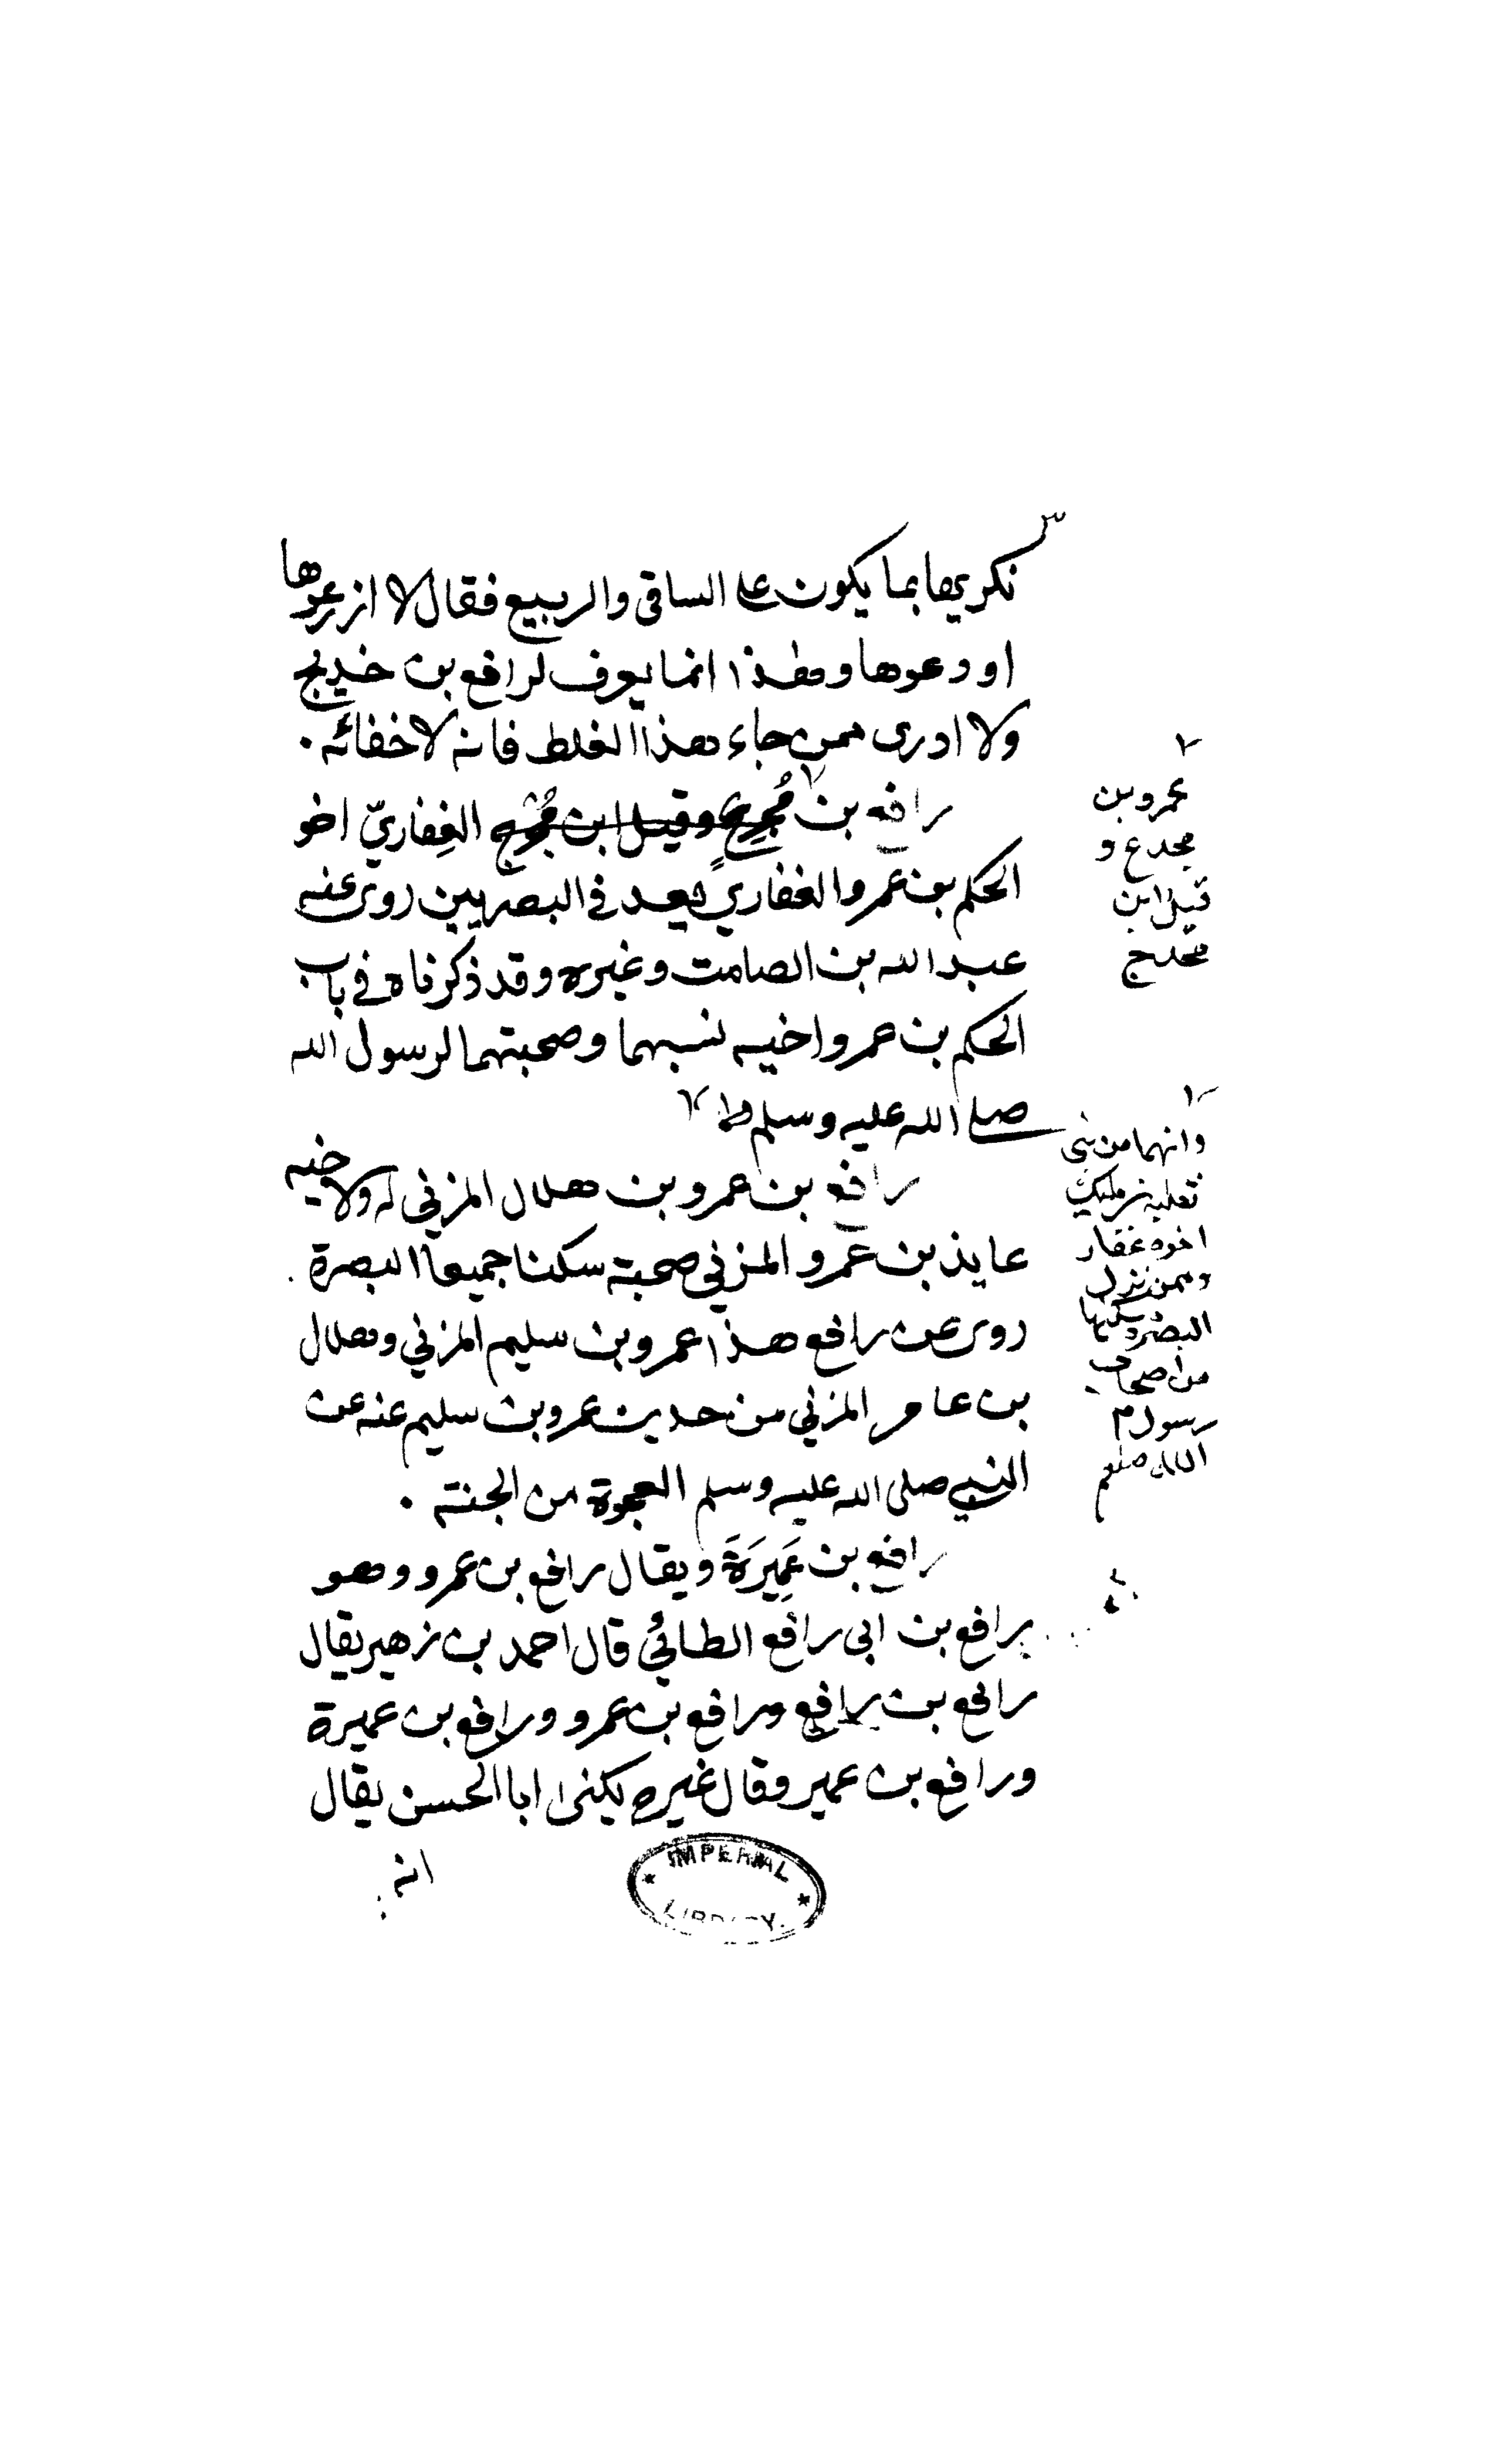 نكريها بما يكون على الساقى والربيع فقال لا ازرعوها
او دعوها وهذا انما يعرف لرافع بن خديج
ولا ادرى ممن جاء هذا الغلط فانه لا خفائه .
رافع بن وقيل ابن الغِفاريّ اخو
الحكم بن عمرو الغفاري يعد في البصريين روى عنه
عبد الله بن الصامت وغيره وقد ذكرناه في باب
الحكم بن عمرو اخيه نسبهما وصحبتهما لرسول الله
صلى الله عليه وسلم
رافع بن عمرو بن هلال المزني له ولاخيه
عايذ بن عمرو المزني صحبة سكنا جميعا البصرة
روى عن رافع هذا عمرو بن سليم المزني وهلال
بن عامر المزني من حديث عمرو بن سليم عنه عن
النبي صلى الله عليه وسلم العجوة من الجنة .
رافع بن عَمِيرَة ويقال رافع بن عمرو وهو
رافع بن ابى رافع الطائي قال احمد بن زهير يقال
رافع بن رافع ورافع بن عمرو ورافع بن عميرة
ورافع بن عمير وقال غيره يكنى ابا الحسن يقال
انه
عمرو بن
مجدع و
قيل ابن
مخدج
وانهما من بنى
ثعلبة بن مليك
اخوه غفار
وممن نزل
البصرة وسكنها
من اصحاب
رسول
الله صلعم
IMPERIAL
LIBRARY.